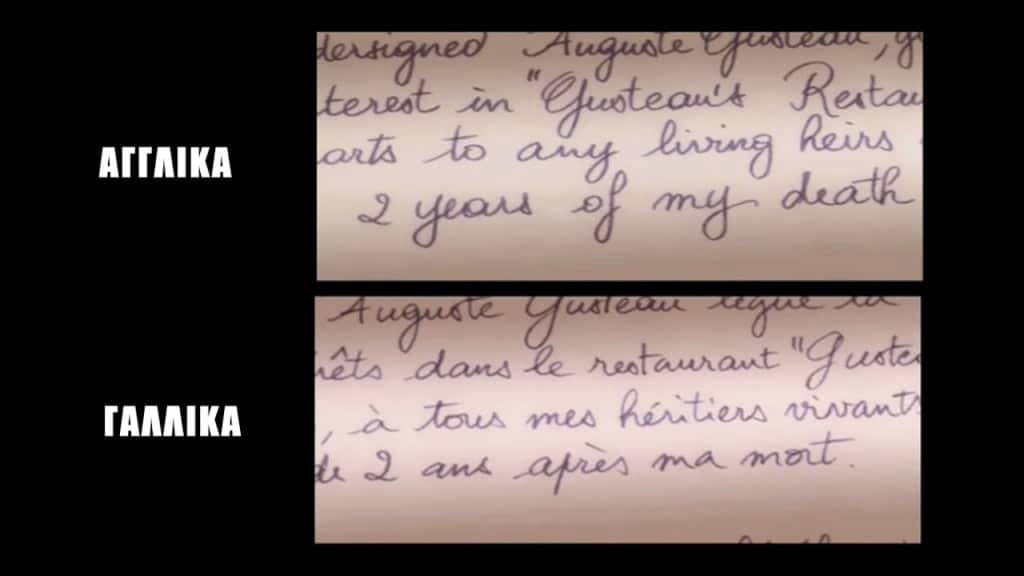 ΑΓΓΛΙΚΑ
dersigned Auguste Gusteau, g
terest in "Gusteau's Restau
arts to any living heirs
2 years of my death
ΓΑΛΛΙΚΑ
Auguste Gusteau lègue la
rêts dans le restaurant "Guste
, à tous mes héritiers vivants
de 2 ans après ma mort.